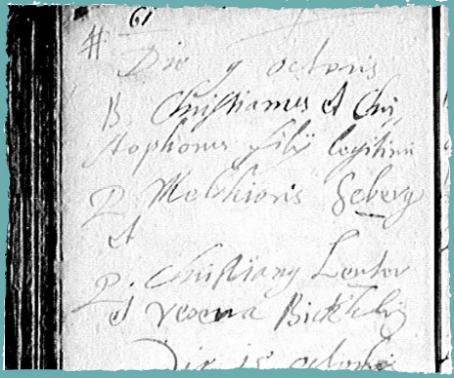 61
# Die 9 octoris
B. Christianus et Chri,
stophorus filij legitimi
P. Melchioris Seberg
et
P. Christiany Lentor
et verena Bickhli
Die 15 octobris